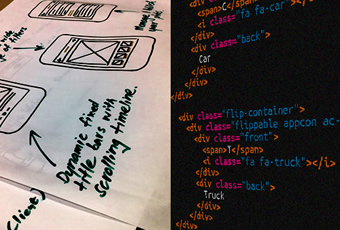 Dynamic fixed
title bars with
scrolling timeline.
(Client)
<span>C</span>
<i class="fa fa-car"
</div>
<div class="back">
Car
</div>
</div>
</div>
<div class="flip-container">
<div class="flippable appcon ac-
<div class="front">
<span>T</span>
<i class="fa fa-truck"></i>
</div>
<div class="back">
Truck
</div>
</div>